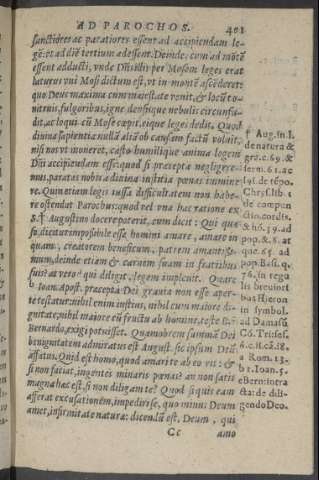 AD PAROCHOS. 401
sanctiores ac paratiores essent ad accipiendam le-
gē: et ad diē tertium adessent. Deinde, cum ad mōtē
essent adducti, vnde Dn̄o illis per Mosem leges erat
laturus vni Mosi dictum est, vt in montē ascēderet:
quo Deus maxima cum maiestate venit, & locū to-
nitruis, fulgoribus, igne densisque nebulis circunfu-
dit, ac loqui cū Mose cœpit, eique leges dedit. Quod
diuina sapientia nulla aliā ob causam factū voluit,
nisi vos vt moneret, casto humilique animo legem
Dn̄i accipiendam esse: quod si præcepta negligere-
mus, paratas nobis a diuina iustitia pœnas imminere
re. Quin etiam legis iussa difficultatem non habe-
re ostendat Parochus: quod vel vna hac ratione ex
S. † Augustino docere poterit, cum dicit: Qui quæ-
so, dicitur impossibile esse homini amare, amare in
quam, creatorem beneficum, patrem amantissi-
mum, deinde etiam & carnem suam in fratribus
suis? at vero a qui diligit, legem impleuit. Quare
b Ioan. Apost. præcepta Dei grauia non esse aper-
te testatur: nihil enim iustius, nihil cum maiore di-
gnitate, nihil maiore eū fructu ab homine, teste B.
Bernardo, exigi potuisset. Quamobrem summā Dei
benignitatem admiratus est August. sic ipsum Deū
affatus, Quid est homo, quod amari te ab eo vis: &
si non faciat, ingentes minaris pœnas? an non satis
magna hæc est, si non diligam te? Quod si quis eam
afferat excusationem, impedirse, quo minus Deum
amet, infirmitate naturæ: dicendū est, Deum, qui
Cc amo
† Aug. in l.
de natura &
gra. c. 69. &
serm. 61. ac
191. de tēpo.
Chrys. lib. 1
de compun
ctio. cordis,
& hō. 59. ad
pop. & 8. at
que 65. ad
pop. Basi. q.
76. in regu
lis breuiori
bus Hieron
in symbol.
ad Damasū.
Cō. Trises.
6. c. 11. cā. 18.
a Rom. 13.
b 1. Ioan. 5.
c Bern: intra
cta: de dili-
gendo Deo.